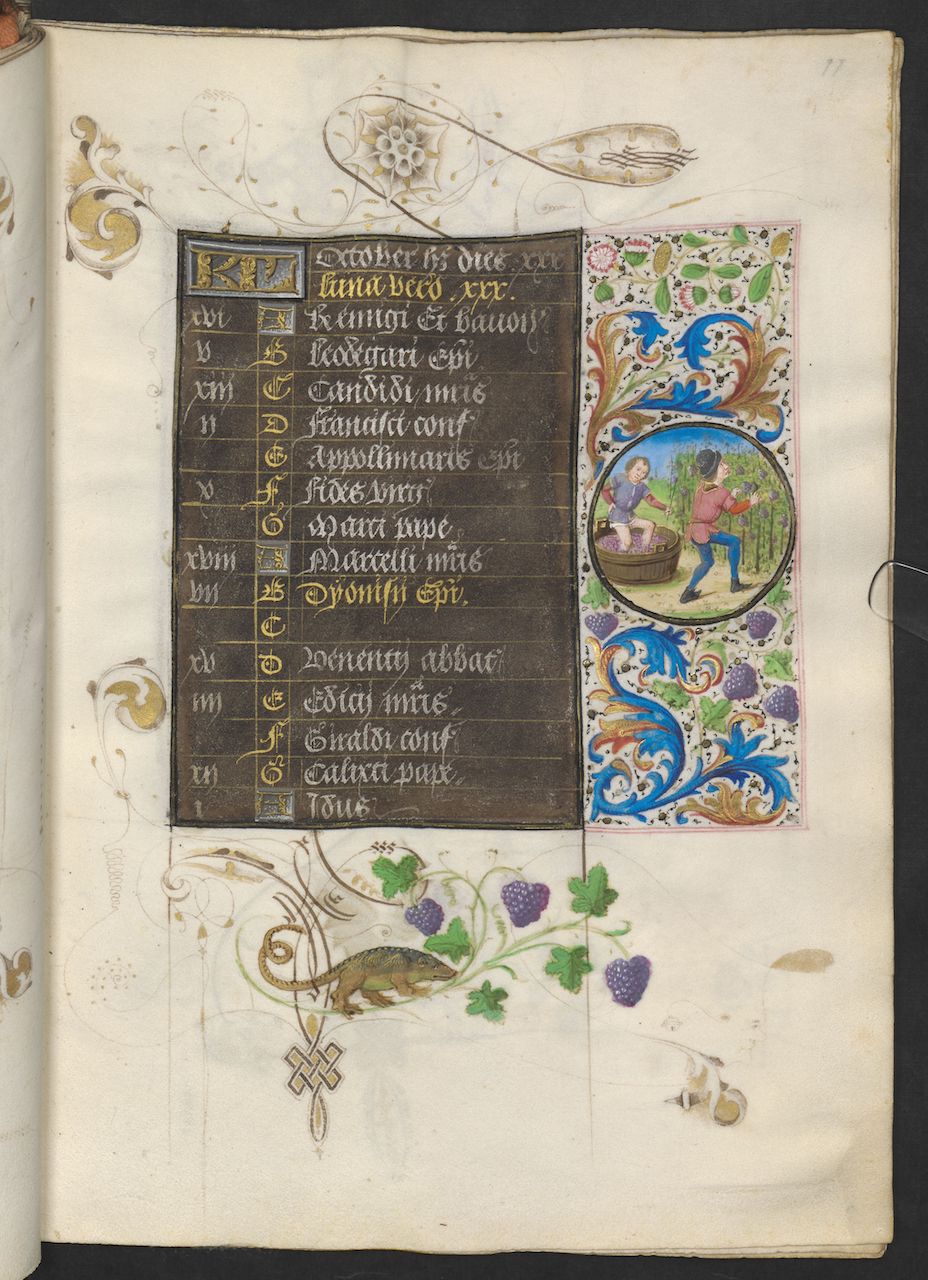 KL October hz dies xxx
luna vero .xxx.
xvi A Remigi Et bavonis
v B Leodegari Epi
xiij C Candidi mris
ij D Francisci conf
E Appollinaris Epi
v F Fides virg
G Marci pape
xviij A Marcelli mris
vij B Dyonisii Epi.
C
xv D Venentii abbat
iiij E Edicij mris
F Giraldi conf
xij G Calixti pape
i A Idus